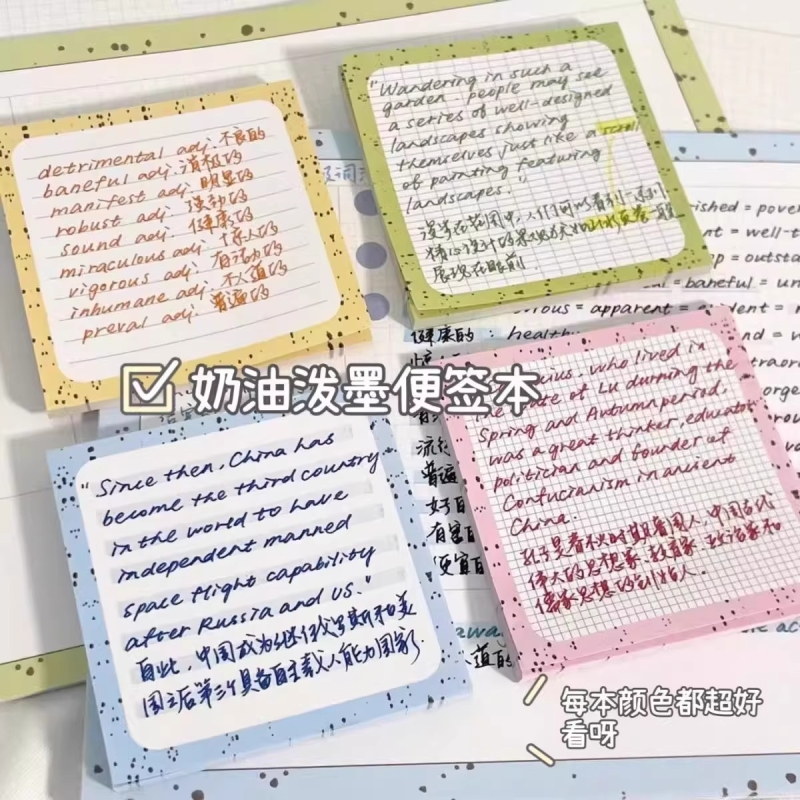 detrimental adj. 不良的
baneful adj. 消极的
manifest adj. 明显的
robust adj. 强劲的
sound adj. 健康的
miraculous adj. 惊人的
vigorous adj. 有活力的
inhumane adj. 不人道的
preval adj. 普遍的
"Wandering in such a
garden. people may see
a series of well-designed
landscapes showing
themselves just like a scroll
of painting featuring
landscapes."
漫步在花园中,人们可以看到一系列
精心设计的景观犹如山水画卷一般
展现在眼前
ished = pover
nt = well-t
p = outsta
l = baneful = un
rous = apparent = dent =
健康的 : health
☑ 奶油泼墨便签本
"Since then, China has
become the third country
in the world to have
independent manned
space flight capability
after Russia and US."
自此,中国成为继俄罗斯和美
国之后第三个具备自主载人能力国家了.
ius, who lived in
the state of Lu durning the
Spring and Autumn period,
was a great thinker, educator
politician and founder of
Confucianism in ancient
China.
孔子是春秋时期鲁国人,中国古代
伟大的思想家、教育家、政治家和
儒家思想的创始人.
流行
普遍
好
有害
便宜
道的
每本颜色都超好
看呀